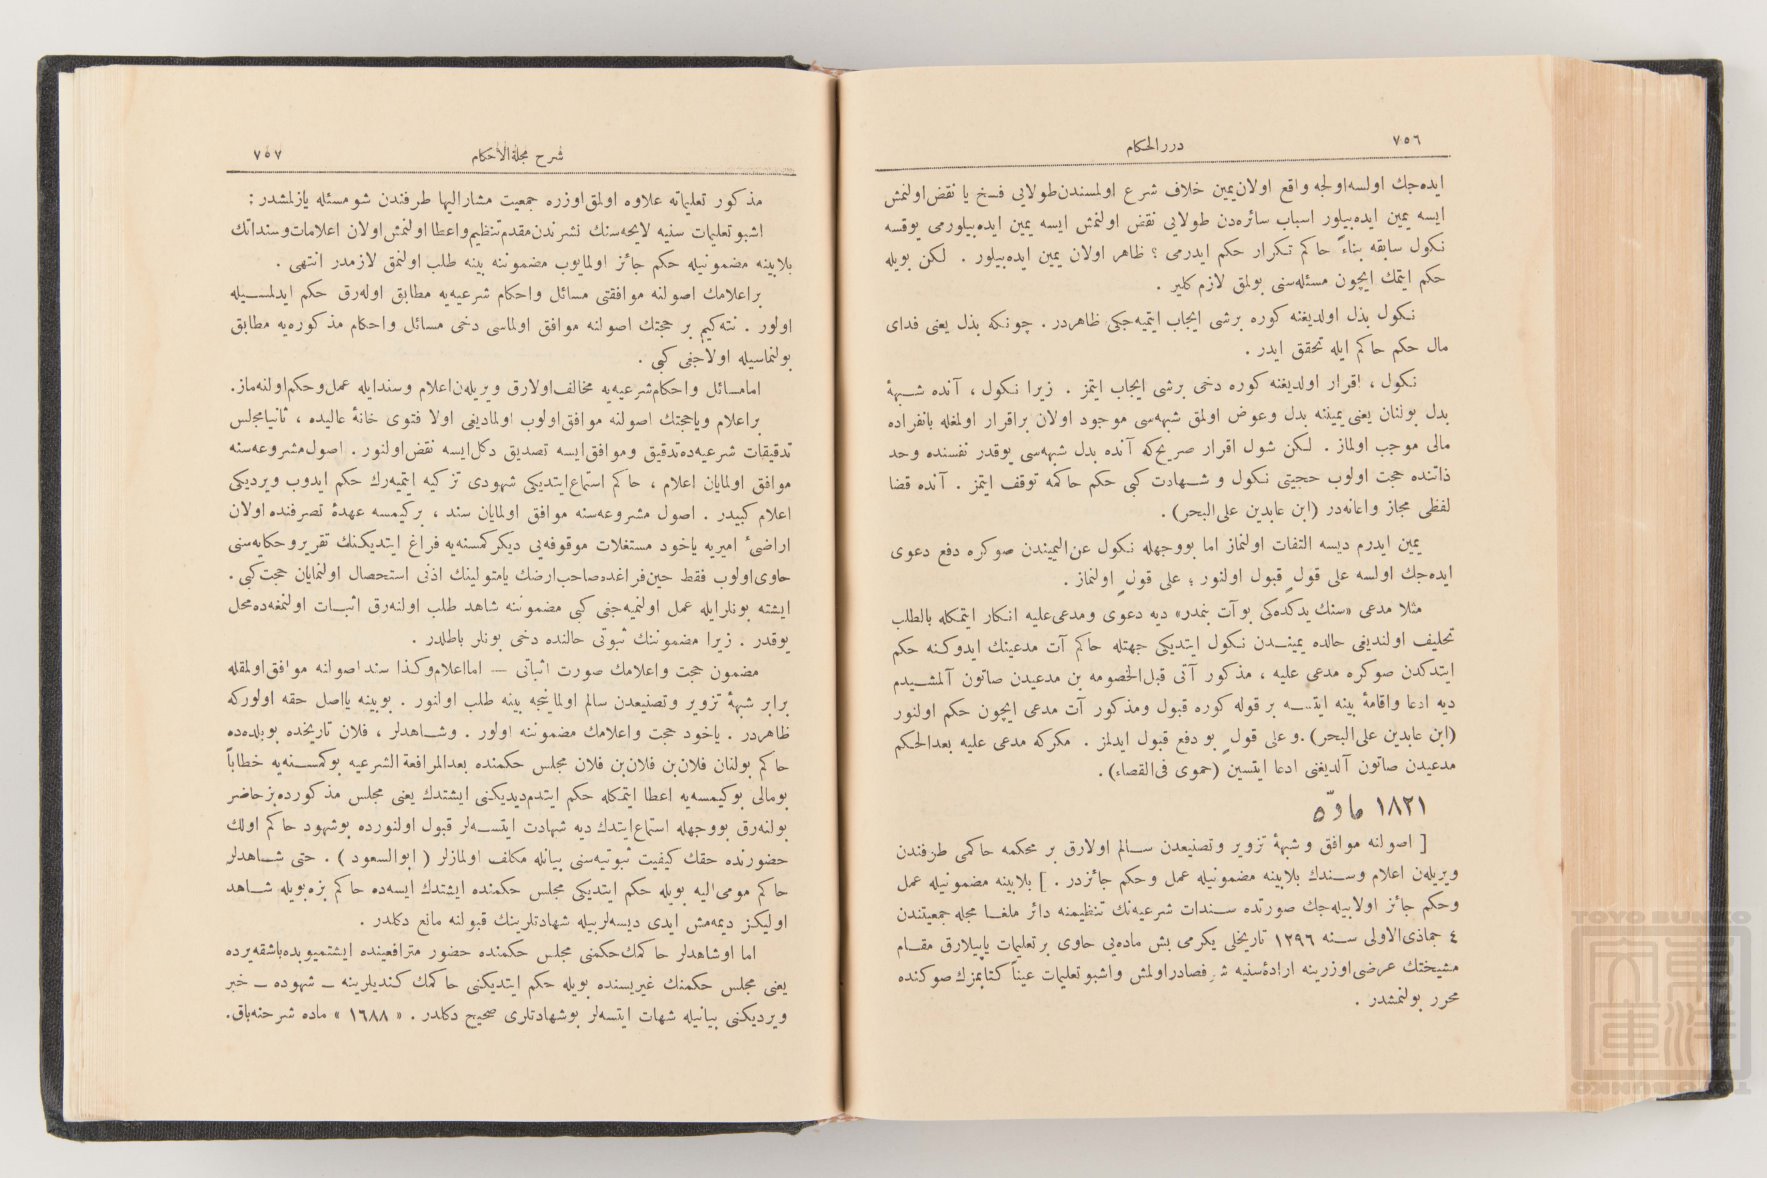 ٧٥٦
دررالحكام
ايده‌جك اولسه اولجه واقع اولان يمين خلاف شرع اولمسندن طولايی فسخ يا نقض اولنمش
ايسه يمين ايده‌بيلور اسباب سائره‌دن طولايی نقض اولنمش ايسه يمين ايده‌بيلورمی يوقسه
نكول سابقه بناءً حاكم تكرار حكم ايدرمی ؟ ظاهر اولان يمين ايده‌بيلور . لكن بويله
حكم ايتمك ايچون مسئله‌سنی بولمق لازم كلير .
نكول بذل اولديغنه كوره برشی ايجاب ايتميه‌جكی ظاهردر . چونكه بذل يعنی فدای
مال حكم حاكم ايله تحقق ايدر .
نكول ، اقرار اولديغنه كوره دخی برشی ايجاب ايتمز . زيرا نكول ، آنده شبهۀ
بدل بولنان يعنی يميننه بدل وعوض اولمق شبهه‌سی موجود اولان براقرار اولمغله بانفراده
مالی موجب اولماز . لكن شول اقرار صريح‌كه آنده بدل شبهه‌سی يوقدر نفسنده وحد
ذاتنده حجت اولوب حجيتی نكول و شهادت كبی حكم حاكمه توقف ايتمز . آنده قضا
لفظی مجاز واعانه‌در (ابن عابدين علی‌البحر) .
يمين ايدرم ديسه التفات اولنماز اما بووجهله نكول عن‌اليميندن صوكره دفع دعوی
ايده‌جك اولسه علی قولٍ قبول اولنور ؛ علی قولٍ اولنماز .
مثلا مدعی «سنك يدكده‌كی بو آت بنمدر» ديه دعوی ومدعی‌عليه انكار ايتمكله بالطلب
تحليف اولنديغی حالده يميندن نكول ايتديكی جهتله حاكم آت مدعينك ايدوكنه حكم
ايتدكدن صوكره مدعی عليه ، مذكور آتی قبل‌الخصومه بن مدعيدن صاتون آلمشيدم
ديه ادعا واقامۀ بينه ايتسه بر قوله كوره قبول ومذكور آت مدعی ايچون حكم اولنور
(ابن عابدين علی‌البحر) .وعلی قولٍ بو دفع قبول ايدلمز . مكركه مدعی عليه بعدالحكم
مدعيدن صاتون آلديغنی ادعا ايتسين (حموی فی‌القضاء) .
١٨٢١ ماده
[ اصولنه موافق و شبهۀ تزوير وتصنيعدن سالم اولارق بر محكمه حاكمی طرفندن
ويريلن اعلام وسندك بلابينه مضمونيله عمل وحكم جائزدر . ] بلابينه مضمونيله عمل
وحكم جائز اولابيله‌جك صورتده سندات شرعيه‌نك تنظيمنه دائر ملغا مجله جمعيتندن
٤ جماذی‌الاولی سنه ١٢٩٦ تاريخلی يكرمی بش ماده‌يی حاوی بر تعليمات ياپيلارق مقام
مشيختك عرضی اوزرينه ارادۀ سنيه شرفصادر اولمش واشبو تعليمات عيناً كتابمزك صوكنده
محرر بولنمشدر .
شرح مجلة‌الأحكام
٧٥٧
مذكور تعليماته علاوه اولمق اوزره جمعيت مشاراليها طرفندن شومسئله يازلمشدر :
اشبو تعليمات سنيه لايحه‌سنك نشرندن مقدم تنظيم واعطا اولنمش اولان اعلامات وسنداتك
بلابينه مضمونيله حكم جائز اولمايوب مضموننه بينه طلب اولنمق لازمدر انتهی .
براعلامك اصولنه موافقتی مسائل واحكام شرعيه‌يه مطابق اوله‌رق حكم ايدلمسيله
اولور . نته‌كيم بر حجتك اصولنه موافق اولماسی دخی مسائل واحكام مذكوره‌يه مطابق
بولنماسيله اولاجغی كبی .
امامسائل واحكام شرعيه‌يه مخالف اولارق ويريلن اعلام وسندايله عمل وحكم اولنه‌ماز.
براعلام وياحجتك اصولنه موافق اولوب اولماديغی اولا فتوی خانۀ عاليده ، ثانيا مجلس
تدقيقات شرعيه‌ده تدقيق وموافق ايسه تصديق دكل ايسه نقض اولنور . اصول مشروعه‌سنه
موافق اولمايان اعلام ، حاكم استماع ايتديكی شهودی تزكيه ايتميه‌رك حكم ايدوب ويرديكی
اعلام كبيدر . اصول مشروعه‌سنه موافق اولمايان سند ، بركيمسه عهدۀ تصرفنده اولان
اراضیٔ اميريه ياخود مستغلات موقوفه‌يی ديكر كمسنه‌يه فراغ ايتديكنك تقرير وحكايه‌سنی
حاوی اولوب فقط حين فراغده صاحب ارضك يا متولينك اذنی استحصال اولنمايان حجت كبی .
ايشته بونلرايله عمل اولنميه‌جغی كبی مضموننه شاهد طلب اولنه‌رق اثبات اولنمغه‌ده محل
يوقدر . زيرا مضموننك ثبوتی حالنده دخی بونلر باطلدر .
مضمون حجت واعلامك صورت اثباتی — امااعلام وكذا سند اصولنه موافق اولمقله
برابر شبهۀ تزوير وتصنيعدن سالم اولماينجه بينه طلب اولنور . بوبينه يا اصل حقه اولوركه
ظاهردر . ياخود حجت واعلامك مضموننه اولور . وشاهدلر ، فلان تاريخده بوبلده‌ده
حاكم بولنان فلان‌بن فلان‌بن فلان مجلس حكمنده بعدالمرافعة الشرعيه بوكمسنه‌يه خطاباً
بومالی بوكيمسه‌يه اعطا ايتمكله حكم ايتدم ديديكنی ايشتدك يعنی مجلس مذكورده بزحاضر
بولنه‌رق بووجهله استماع ايتدك ديه شهادت ايتسه‌لر قبول اولنورده بوشهود حاكم اولك
حضورنده حقك كيفيت ثبوتيه‌سنی بيانله مكلف اولمازلر ( ابوالسعود ) . حتی شاهدلر
حاكم مومی‌اليه بويله حكم ايتديكی مجلس حكمنده ايشتدك ايسه‌ده حاكم بزه بويله شاهد
اوليكز ديمه‌مش ايدی ديسه‌لربيله شهادتلرينك قبولنه مانع دكلدر .
اما اوشاهدلر حاكمك حكمنی مجلس حكمنده حضور مترافعينده ايشتميوبده باشقه يرده
يعنی مجلس حكمنك غيريسنده بويله حكم ايتديكنی حاكمك كنديلرينه ــ شهوده ــ خبر
ويرديكنی بيانيله شهات ايتسه‌لر بوشهادتلری صحيح دكلدر . « ١٦٨٨ » ماده شرحنه‌باق.
TOYO BUNKO
東洋文庫
TOYO BUNKO